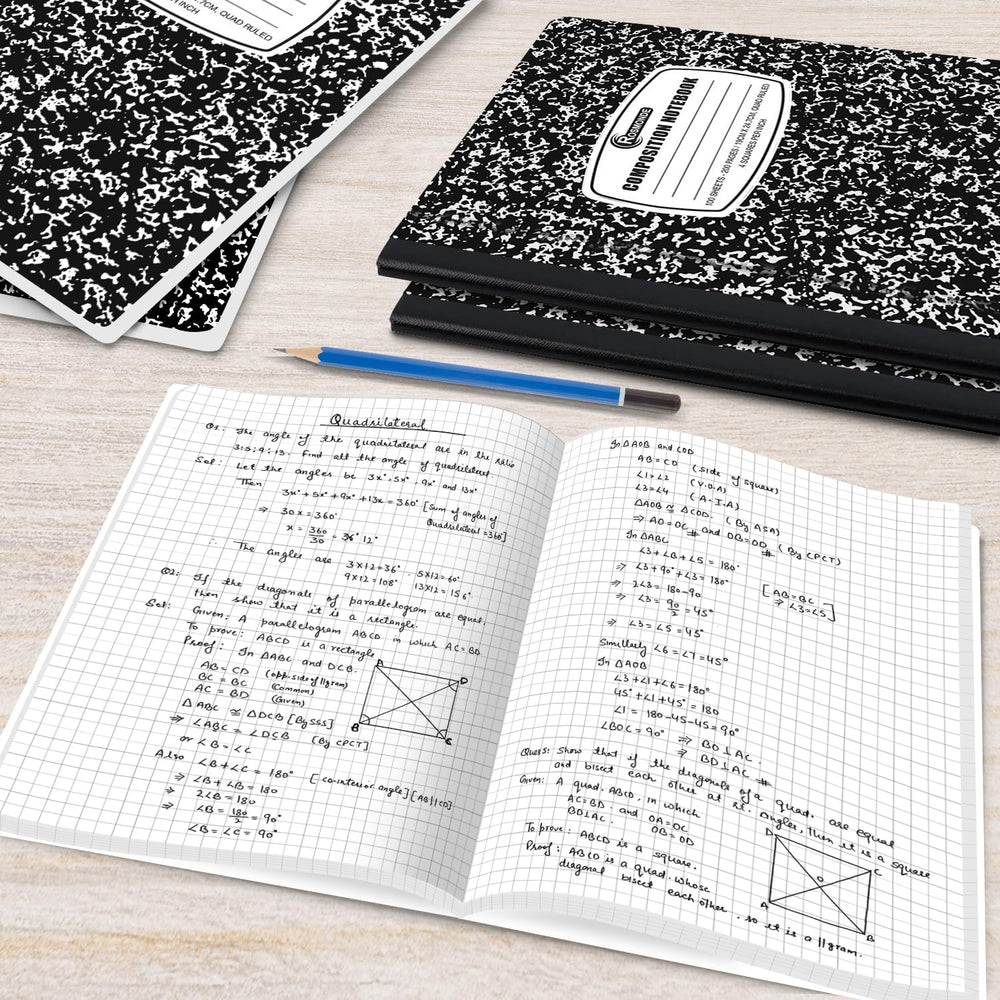 7CM, QUAD RULED
PER INCH
ROSMONDE
COMPOSITION NOTEBOOK
100 SHEETS - 200 PAGES | 19CM X 24.7CM, QUAD RULED
4 SQUARES PER INCH
Quadrilateral
Q1: The angle of the quadrilateral are in the ratio
3:5:9:13. Find all the angle of quadrilateral.
Sol: Let the angles be 3x°, 5x°, 9x° and 13x°
Then
3x° + 5x° + 9x° + 13x = 360° [Sum of angles of
Quadrilateral = 360]
⇒ 30x = 360°
x = 360/30 = 36° 12°
∴ The angles are 3×12 = 36° . 5×12 = 60°
9×12 = 108° 13×12 = 156°
Q2: If the diagonals of parallelogram are equal.
then show that it is a rectangle.
Sol: Given: A parallelogram ABCD in which AC = BD
To prove: ABCD is a rectangle
Proof: In ΔABC and DCB.
AB = CD (opp. side of ||gram)
BC = BC (Common)
AC = BD (Given)
Δ ABC ≅ ΔDCB [By SSS]
⇒ ∠ABC = ∠DCB [By CPCT]
or ∠B = ∠C
Also ∠B + ∠C = 180° [co-interior angle] [AB||CD]
⇒ ∠B + ∠B = 180
⇒ 2∠B = 180
⇒ ∠B = 180/2 = 90°
∠B = ∠C = 90°
A
D
B
C
In ΔAOB and COD
AB = CD (side of square)
∠1 = ∠2 (V.O.A)
∠3 = ∠4 (A.I.A)
ΔAOB ≅ ΔCOD. (By ASA)
⇒ AO = OC # and OB = OD # (By CPCT)
In ΔABC
∠3 + ∠B + ∠5 = 180°
⇒ ∠3 + 90° + ∠3 = 180°
⇒ 2∠3 = 180-90 [AB = BC
⇒ ∠3 = 90/2 = 45° ⇒ ∠3 = ∠5]
⇒ ∠3 = ∠5 = 45°
Similarly ∠6 = ∠7 = 45°
In ΔAOB
∠3 + ∠1 + ∠6 = 180°
45° + ∠1 + 45° = 180
∠1 = 180-45-45 = 90°
∠BOC = 90° ⇒ BO ⊥ AC.
⇒ BD ⊥ AC #
Ques: Show that if the diagonals of a quad. are equal
and bisect each other at rt. angles, then it is a square
Given: A quad. ABCD, in which
AC = BD and OA = OC
BD ⊥ AC. OB = OD
To prove: ABCD is a square.
Proof: ABCD is a quad. whose
diagonal bisect each other. so it is a ||gram.
D
C
O
A
B